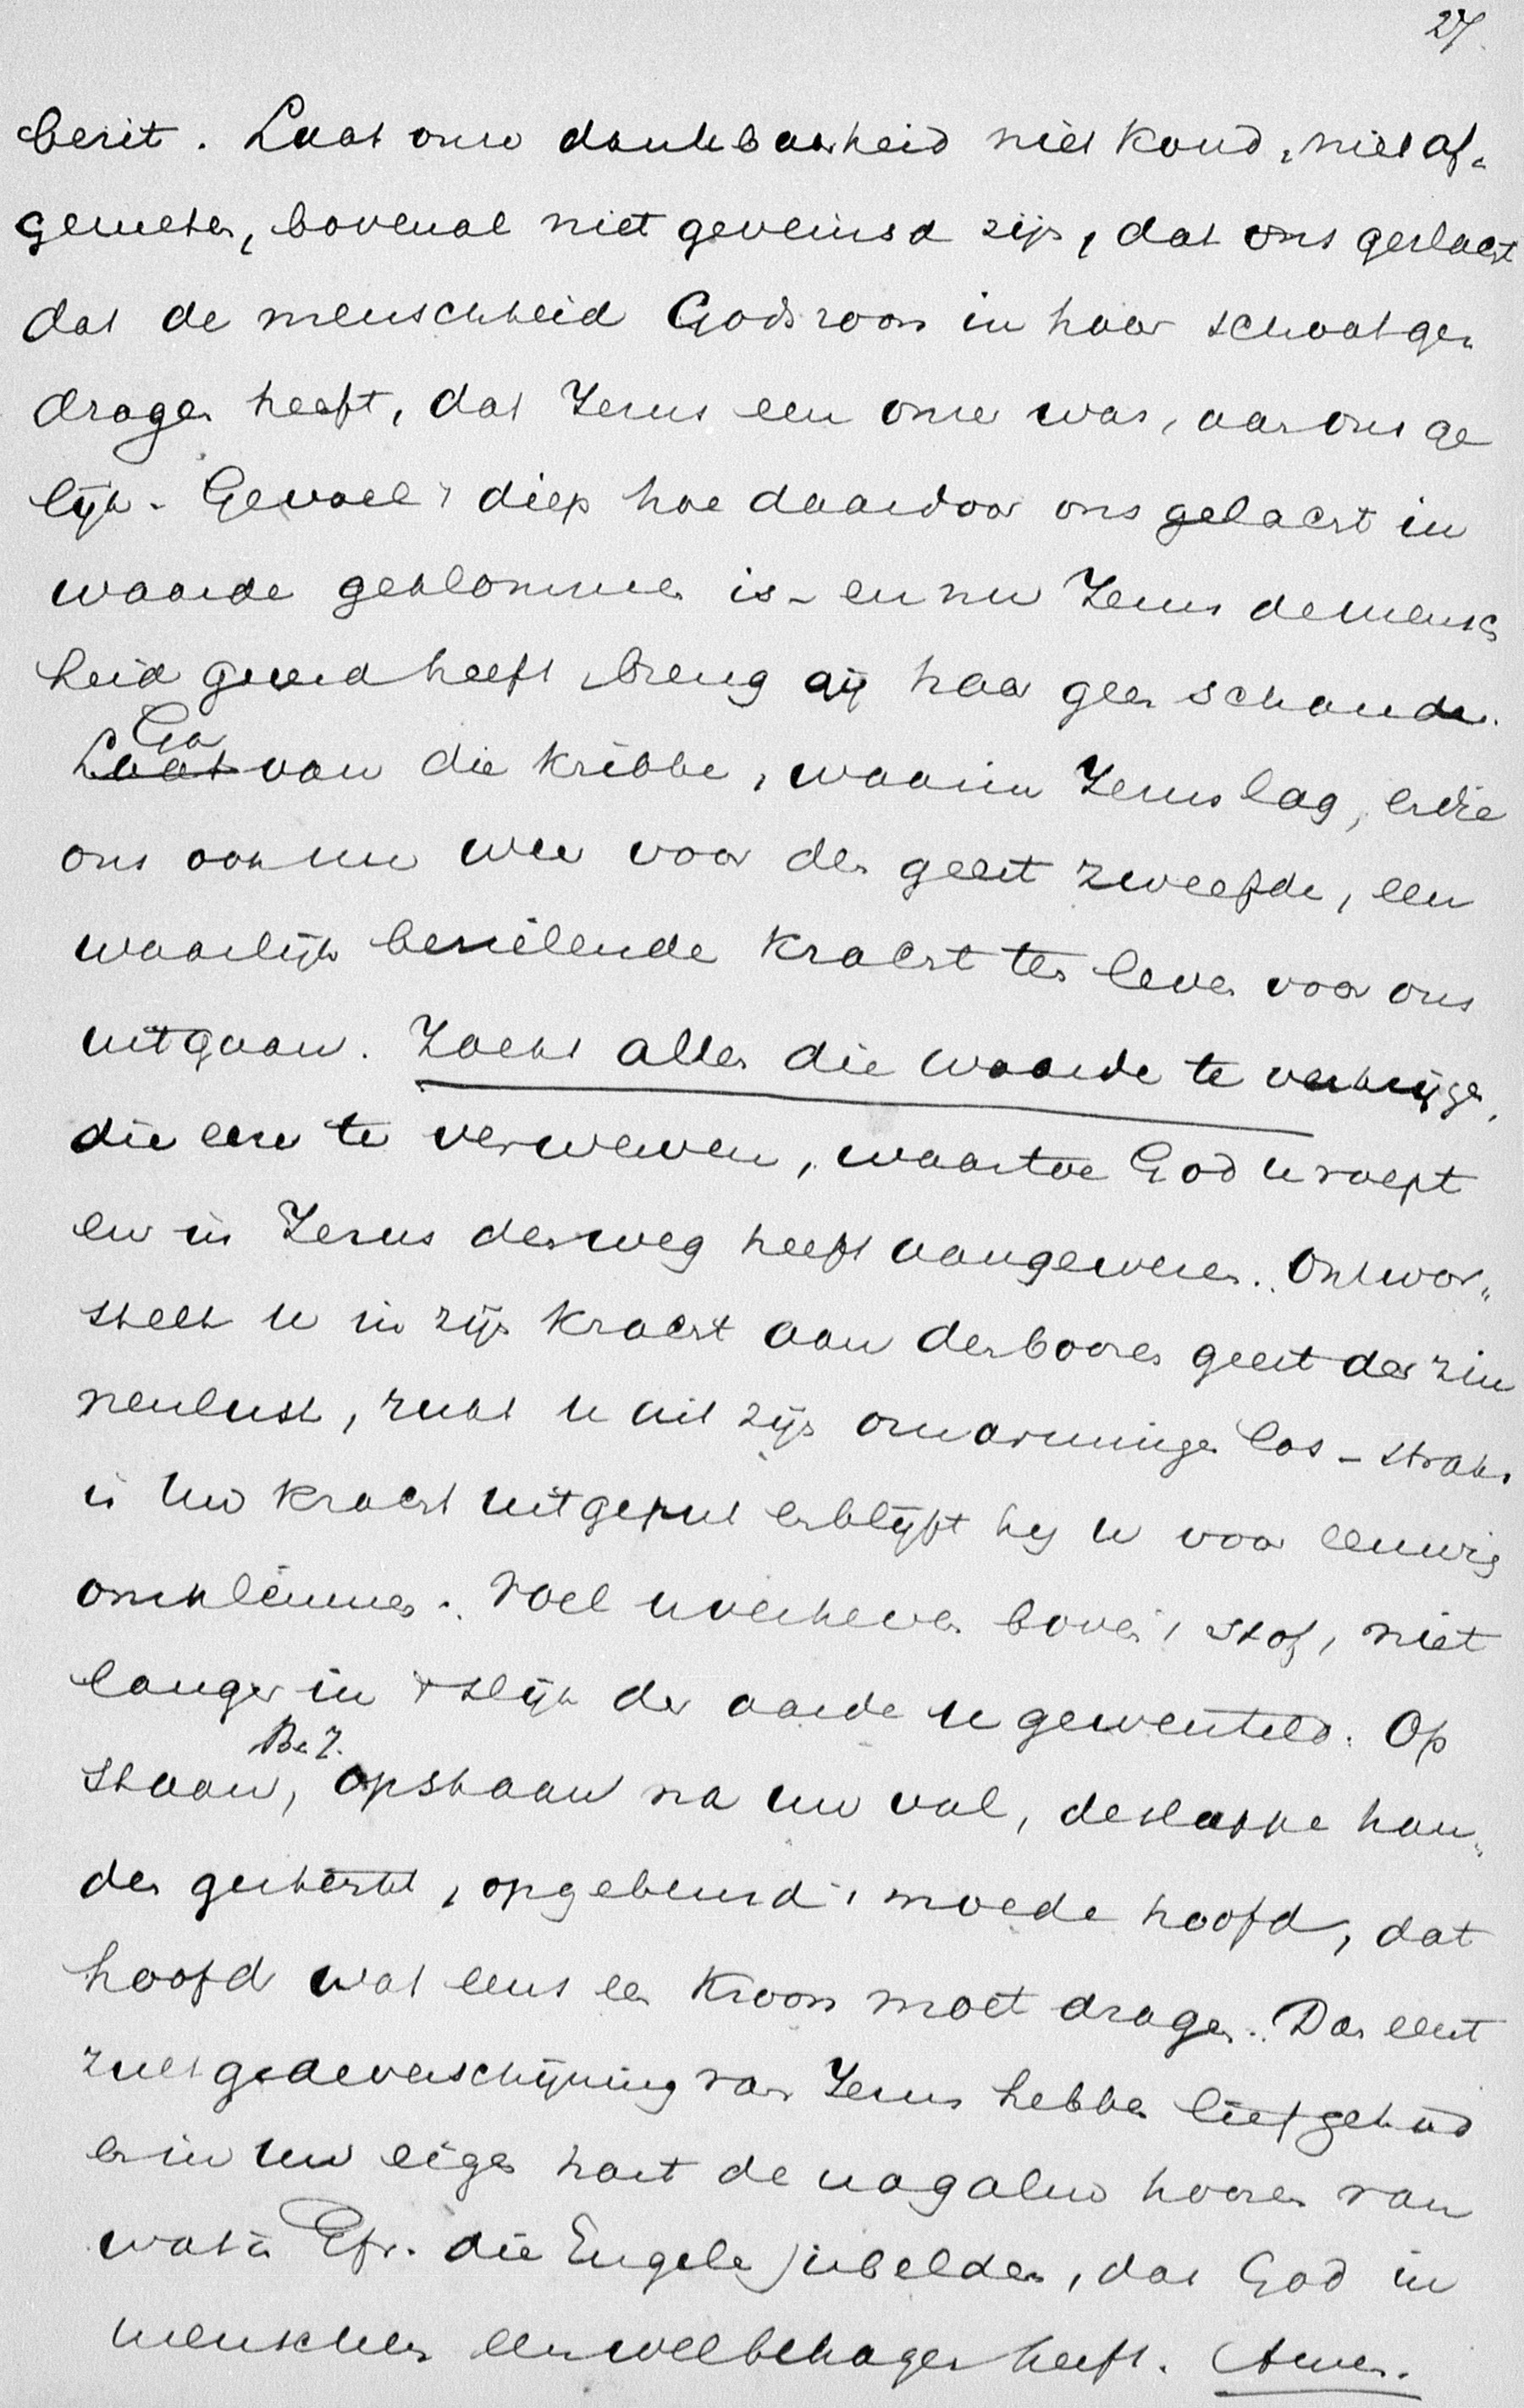 27.
bezit. Laat onze dankbaarheid niet koud, niet af„
gemeten, bovenal niet geveinsd zijn, dat ons geslacht
dat de menschheid Gods zoon in haar schoot ge„
dragen heeft, dat Jezus een onzer was, aan ons ge
lijk. Gevoel 't diep hoe daardoor ons gelacht in
waarde geklommen is - en nu Jezus de mensch
heid geeerd heeft breng gij haar geen schande.
Ga
Laat van die kribbe, waarin Jezus lag, en die
ons ook nu weer voor den geest zweefde, een
waarlijk bezielende kracht ten leven voor ons
uitgaan. Zoekt allen die waarde te verkrijgen,
die eere te verwerven, waartoe God u roept
en in Jezus den weg heeft aangewezen. Ontwor„
stelt u in zijn kracht aan den boozen geest der zin
nenlust, rukt u uit zijn omarmingen los - straks
is uw kracht uitgeput en blijft hij u voor eeuwig
omklemmen. Voel u verheven boven 't stof, niet
langer in 't slijk der aarde u gewenteld. Op
Be Z.
staan, opstaan na uw val, de slappe han„
den gesterkt, opgebeurd 't moede hoofd, dat
hoofd wat eens een kroon moet dragen. Dan eerst
zult ge de verschijning van Jezus hebben liefgehad
en in uw eigen hart de nagalm hooren van
wat in Efr. die Engelen jubelden, dat God in
menschen een welbehagen heeft. Amen.